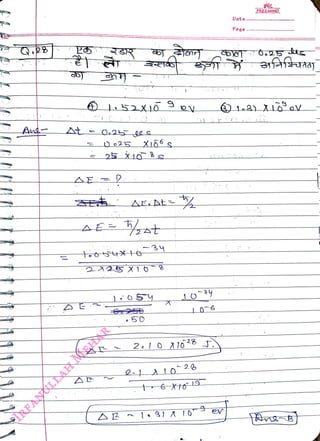 Date
Page
Q.28 एक रडार का दोलन काल 0.25 μs
है। तो उसकी ऊर्जा में अनिश्चितता
का मान -
1.52×10⁻⁹ eV 1.31×10⁻⁹ eV
Ans- Δt = 0.25 μs
= 0.25 ×10⁻⁶ s
= 25 ×10⁻⁸ s
ΔE = ?
ΔE.Δt = ℏ/2
ΔE = ℏ/2Δt
= 1.054×10⁻³⁴ / 2×25×10⁻⁸
ΔE = 1.054 / .50 × 10⁻³⁴ / 10⁻⁶
ΔE = 2.10 ×10⁻²⁸ J.
ΔE = 2.1 ×10⁻²⁸ / 1.6×10⁻¹⁹
ΔE = 1.31×10⁻⁹ eV
Ans-B
IRFANULLAH MEHAR